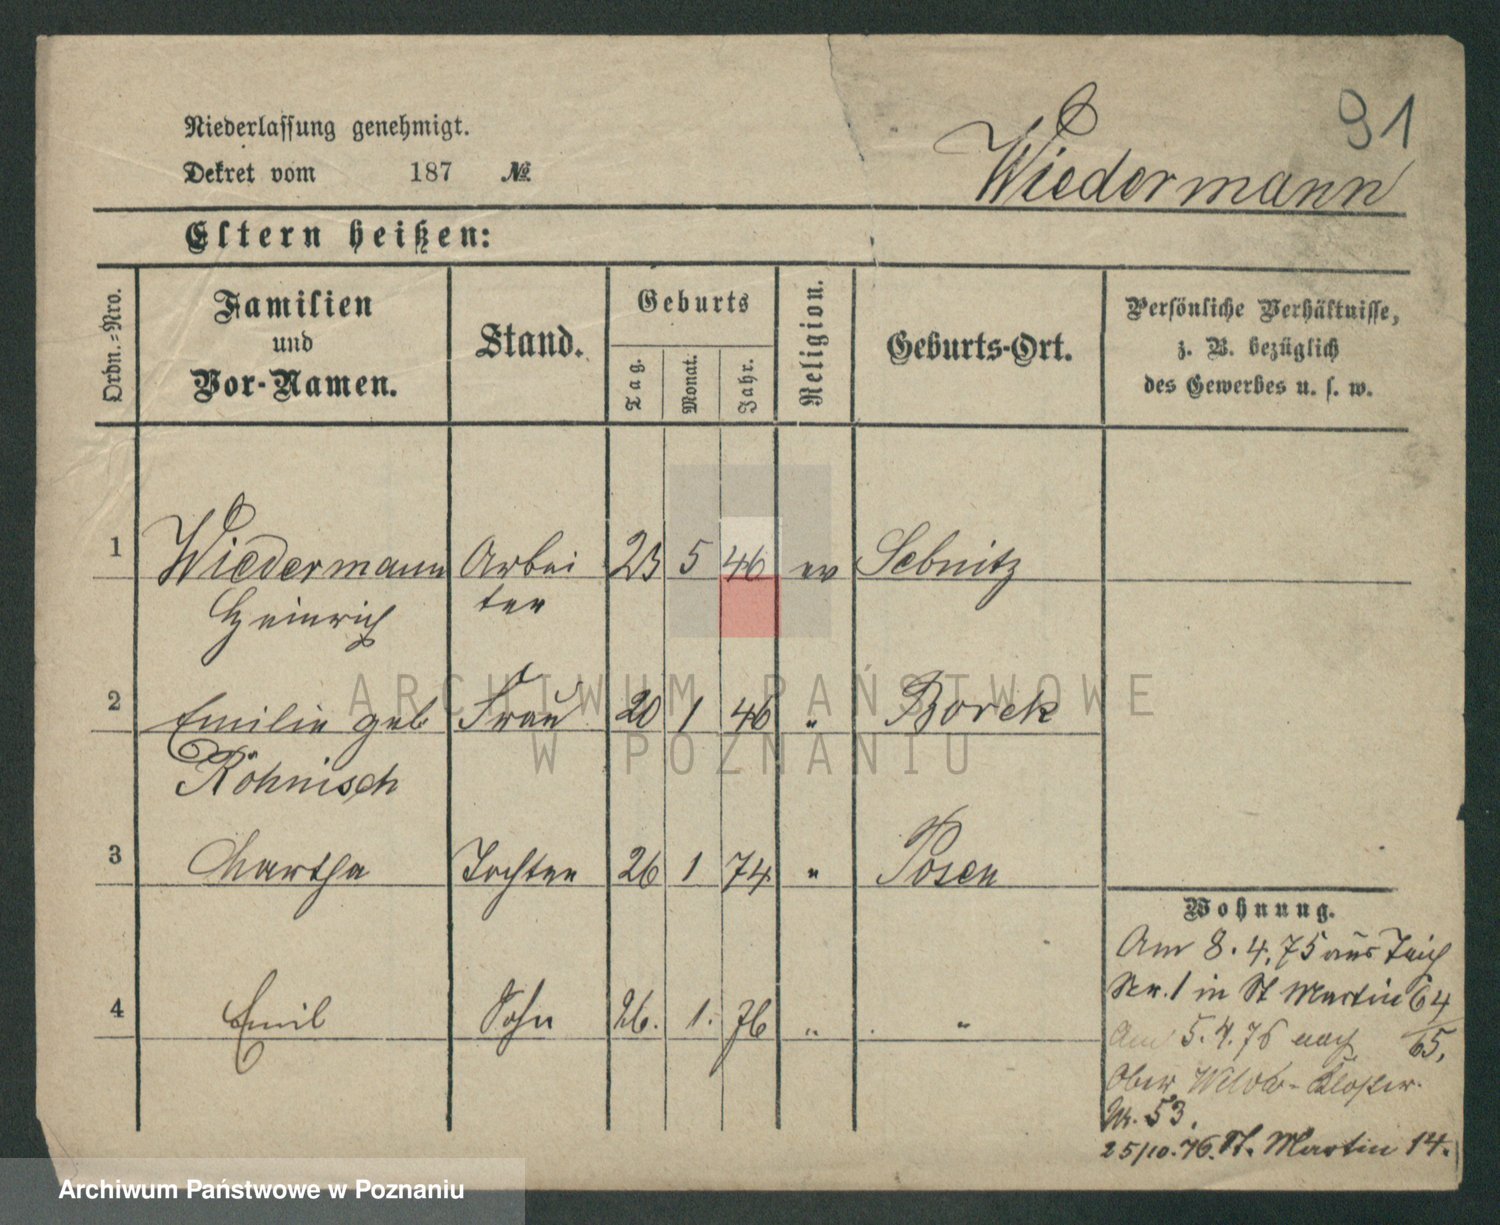 91
Niederlassung genehmigt.
Dekret vom 187 №
Wiedermann
Eltern heißen:
Ordn.-Nro.
Familien
und
Vor-Namen.
Stand.
Geburts
Tag.
Monat.
Jahr.
Religion.
Geburts-Ort.
Persönliche Verhältnisse,
z. B. bezüglich
des Gewerbes u. s. w.
1 Wiedermann Arbei 23 5 46 ev Sebnitz
Heinrich ter
2 Emilie geb Frau 20 1 46 " Borek
Röhnisch
3 Martha Tochter 26 1 74 " Posen
4 Emil Sohn 26. 1. 76 " "
Wohnung.
Am 8.4.75 aus Teich
Str. 1 in St Martin 64
65,
Am 5.4.76 nach
Ober Wilda-
Nr. 53.
25/10.76. St. Martin 14.
ARCHIWUM PAŃSTWOWE
W POZNANIU
Archiwum Państwowe w Poznaniu